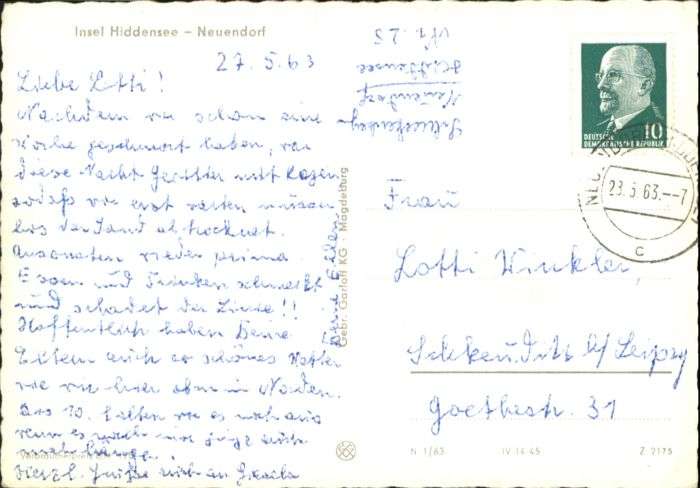 Insel Hiddensee – Neuendorf
27.5.63
Liebe Lotti!
Nachdem wir schon eine
Woche geschmort haben, war
diese Nacht Gewitter mit Regen
sodaß wir erst warten müssen
bis der Sand abtrocknet.
Ansonsten wieder prima.
Essen und Trinken schmeckt
und schadet der Linie!!
Hoffentlich haben Deine
Eltern auch so schönes Wetter
wie wir hier oben im Norden.
Bis 10. halten wir es noch aus
wenn es auch
Herzl. Grüße auch an
Neuendorf
Hiddensee
Gebr. Garloff KG · Magdeburg
DEUTSCHE
DEMOKRATISCHE REPUBLIK
10
63.--7
c
Frau
Lotti Winkler,
b/Leipzig
Goethestr. 31
N 1/63 IV-14-45 Z 2175